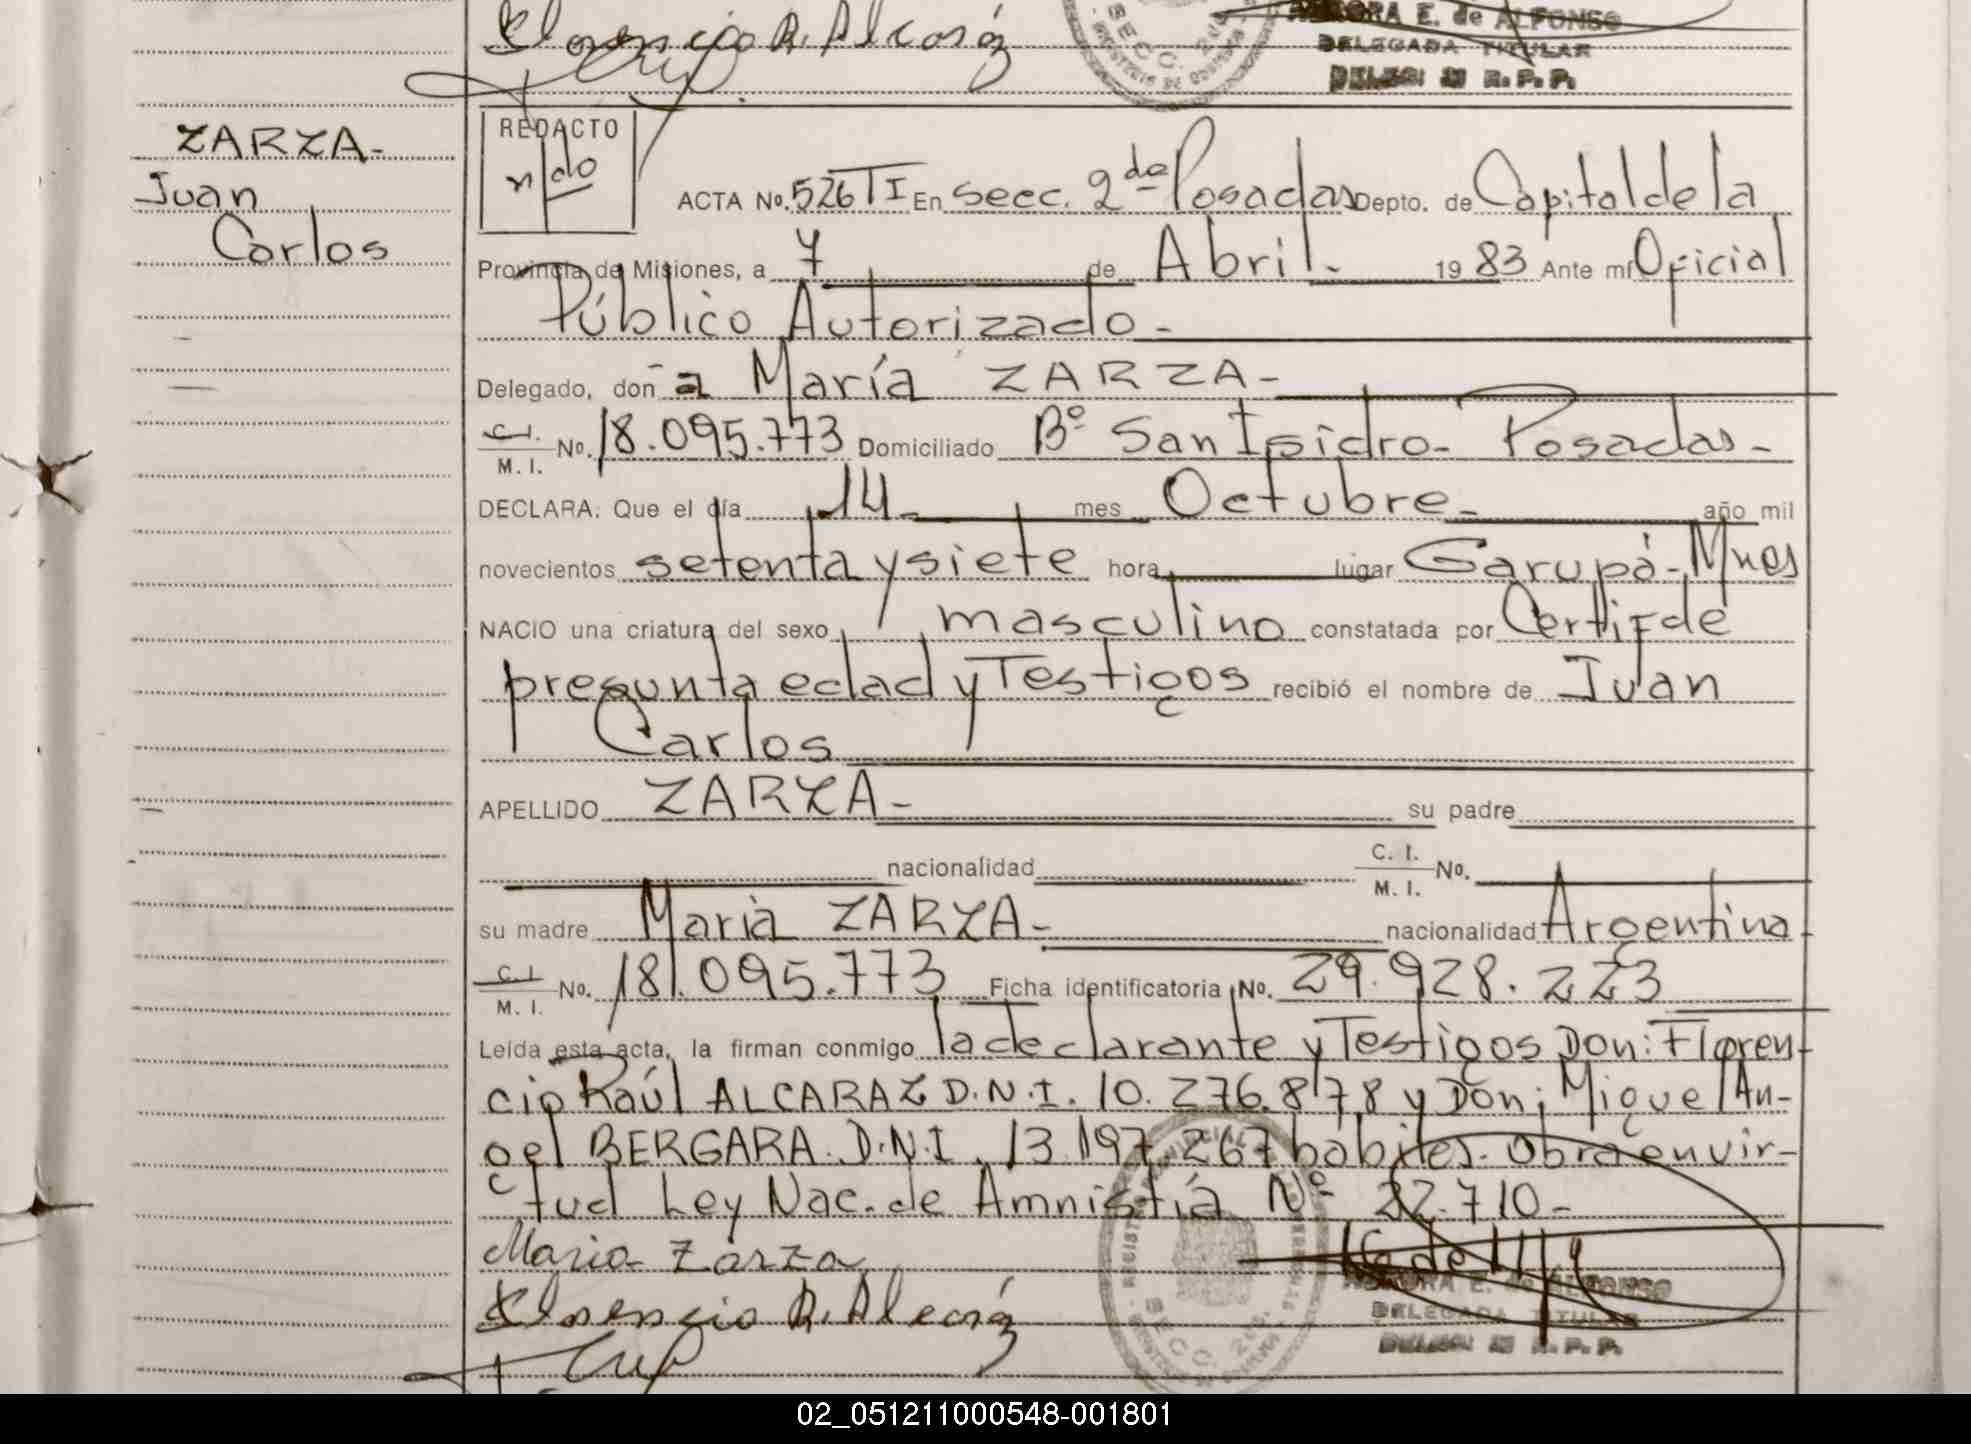 Florencio R. Alcaráz
AURORA E. de ALFONSO
DELEGADA TITULAR
R. P. P.
ZARZA-
Juan
Carlos
REDACTO
ACTA No. 526 T I En secc. 2da Posadas Depto. de Capital de la
Provincia de Misiones, a 7 de Abril.- 19 83 Ante mí Oficial
Público Autorizado-
Delegado, doña María ZARZA-
C. I. / M. I. No. 18.095.773 Domiciliado Bº San Isidro- Posadas-
DECLARA: Que el día 14- mes Octubre- año mil
novecientos setenta y siete hora lugar Garupá- Mnes
NACIO una criatura del sexo masculino constatada por Certif de
presunta edad y Testigos recibió el nombre de Juan
Carlos
APELLIDO ZARZA- su padre
nacionalidad C. I. / M. I. No.
su madre María ZARZA- nacionalidad Argentina
C. I. / M. I. No. 18.095.773 Ficha identificatoria No. 29.928.223
Leída esta acta, la firman conmigo la declarante y Testigos Don: Floren-
cio Raúl ALCARAZ D.N.I. 10.276.878 y Don: Miguel An-
gel BERGARA. D.N.I. 13.197.267 habiles. Obra en vir-
tud Ley Nac. de Amnistía Nº 22.710-
Maria Zarza
Florencio R. Alcaráz
AURORA E. de ALFONSO
DELEGADA TITULAR
R. P. P.
02_051211000548-001801